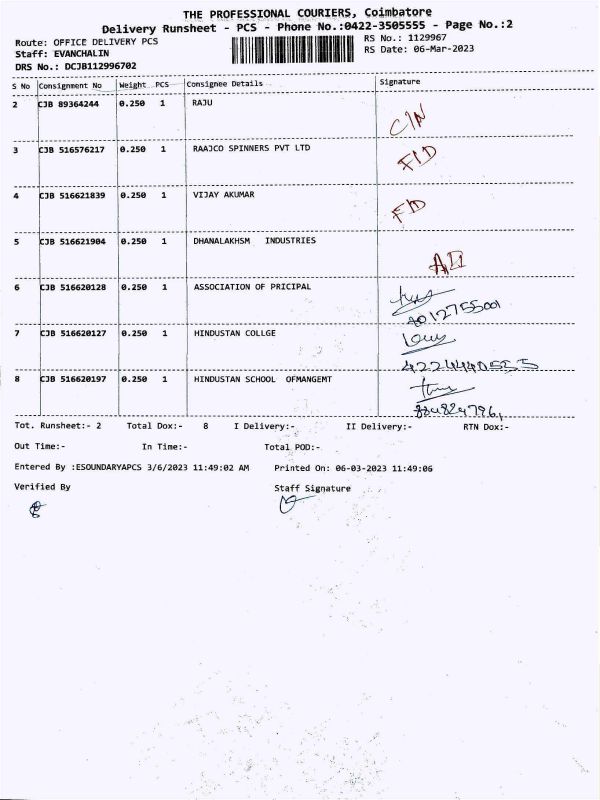 THE PROFESSIONAL COURIERS, Coimbatore
Delivery Runsheet - PCS - Phone No.:0422-3505555 - Page No.:2
Route: OFFICE DELIVERY PCS
RS No.: 1129967
Staff: EVANCHALIN
RS Date: 06-Mar-2023
DRS No.: DCJB112996702
S No Consignment No Weight PCS Consignee Details Signature
2 CJB 89364244 0.250 1 RAJU
C/N
3 CJB 516576217 0.250 1 RAAJCO SPINNERS PVT LTD
F/D
4 CJB 516621839 0.250 1 VIJAY AKUMAR
F/D
5 CJB 516621904 0.250 1 DHANALAKHSM INDUSTRIES
6 CJB 516620128 0.250 1 ASSOCIATION OF PRICIPAL
7 CJB 516620127 0.250 1 HINDUSTAN COLLGE
4224440555
8 CJB 516620197 0.250 1 HINDUSTAN SCHOOL OFMANGEMT
Tot. Runsheet:- 2 Total Dox:- 8 I Delivery:- II Delivery:- RTN Dox:-
Out Time:- In Time:- Total POD:-
Entered By :ESOUNDARYAPCS 3/6/2023 11:49:02 AM Printed On: 06-03-2023 11:49:06
Verified By Staff Signature